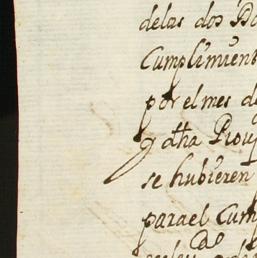 delas dos Po
Cumplimient
por el mes d
y dha Prou
se hubieren
parael Cum